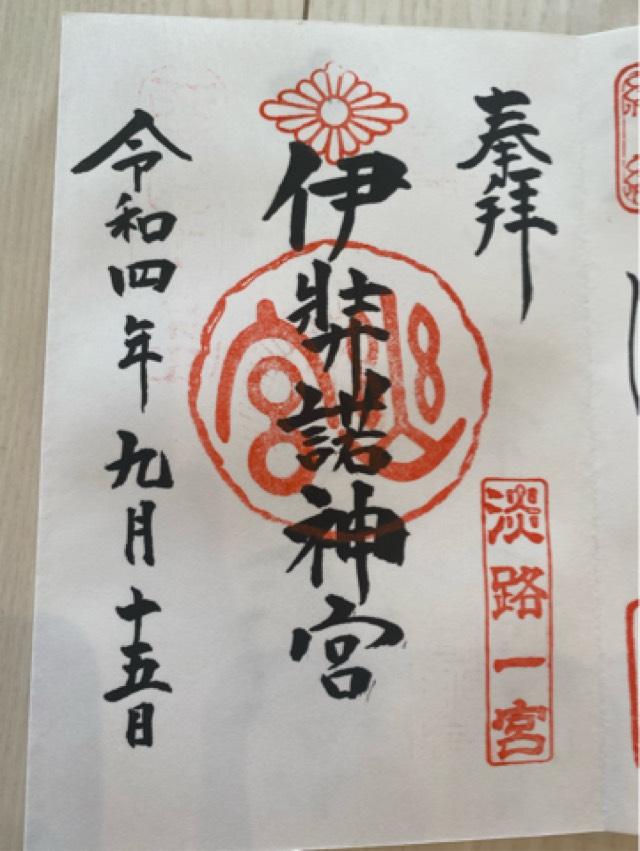 奉拝
淡路一宮
伊弉諾神宮
令和四年九月十五日